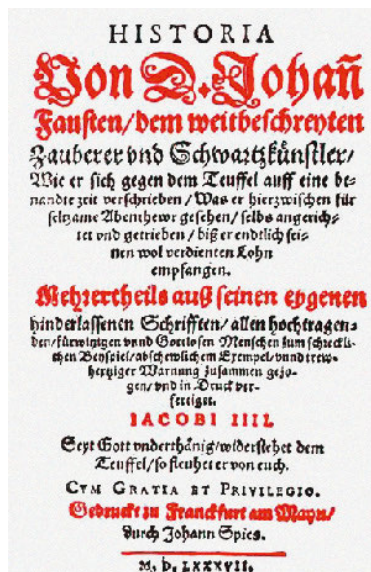 HISTORIA
Von D. Johañ
Fausten/dem weitbeschreyten
Zauberer vnd Schwartzkünstler/
Wie er sich gegen dem Teuffel auff eine be-
nandte zeit verschrieben / Was er hierzwischen für
seltzame Abenthewr gesehen / selbs angerich-
tet vnd getrieben / biß er endtlich sei-
nen wol verdienten Lohn
empfangen.
Mehrertheils auß seinen eygenen
hinderlassenen Schrifften / allen hochtragen-
den / fürwitzigen vnnd Gottlosen Menschen zum schreckli-
chen Beyspiel / abschewlichem Exempel / vnnd trew-
hertziger Warnung zusammen gezo-
gen / vnd in Druck ver-
fertiget.
IACOBI IIII.
Seyt Gott vnderthänig / widerstehet dem
Teuffel / so fleuhet er von euch.
CVM GRATIA ET PRIVILEGIO.
Gedruckt zu Franckfurt am Mayn/
durch Johann Spies.
M. D. LXXXVII.